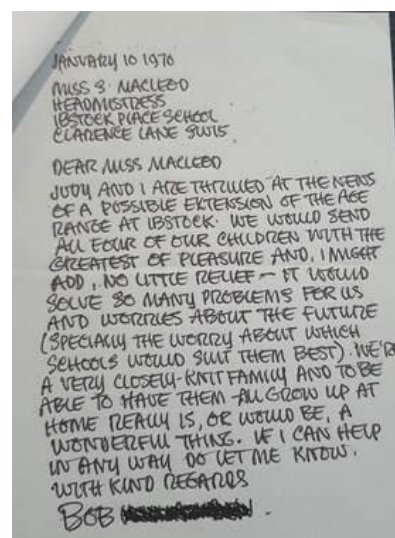 JANUARY 10 1970
MISS S. MACLEOD
HEADMISTRESS
IBSTOCK PLACE SCHOOL
CLARENCE LANE SW15
DEAR MISS MACLEOD
JUDY AND I ARE THRILLED AT THE NEWS
OF A POSSIBLE EXTENSION OF THE AGE
RANGE AT IBSTOCK. WE WOULD SEND
ALL FOUR OF OUR CHILDREN WITH THE
GREATEST OF PLEASURE AND, I MIGHT
ADD, NO LITTLE RELIEF – IT WOULD
SOLVE SO MANY PROBLEMS FOR US
AND WORRIES ABOUT THE FUTURE
(SPECIALLY THE WORRY ABOUT WHICH
SCHOOLS WOULD SUIT THEM BEST). WE'RE
A VERY CLOSELY-KNIT FAMILY AND TO BE
ABLE TO HAVE THEM ALL GROW UP AT
HOME REALLY IS, OR WOULD BE, A
WONDERFUL THING. IF I CAN HELP
IN ANY WAY DO LET ME KNOW.
WITH KIND REGARDS
BOB